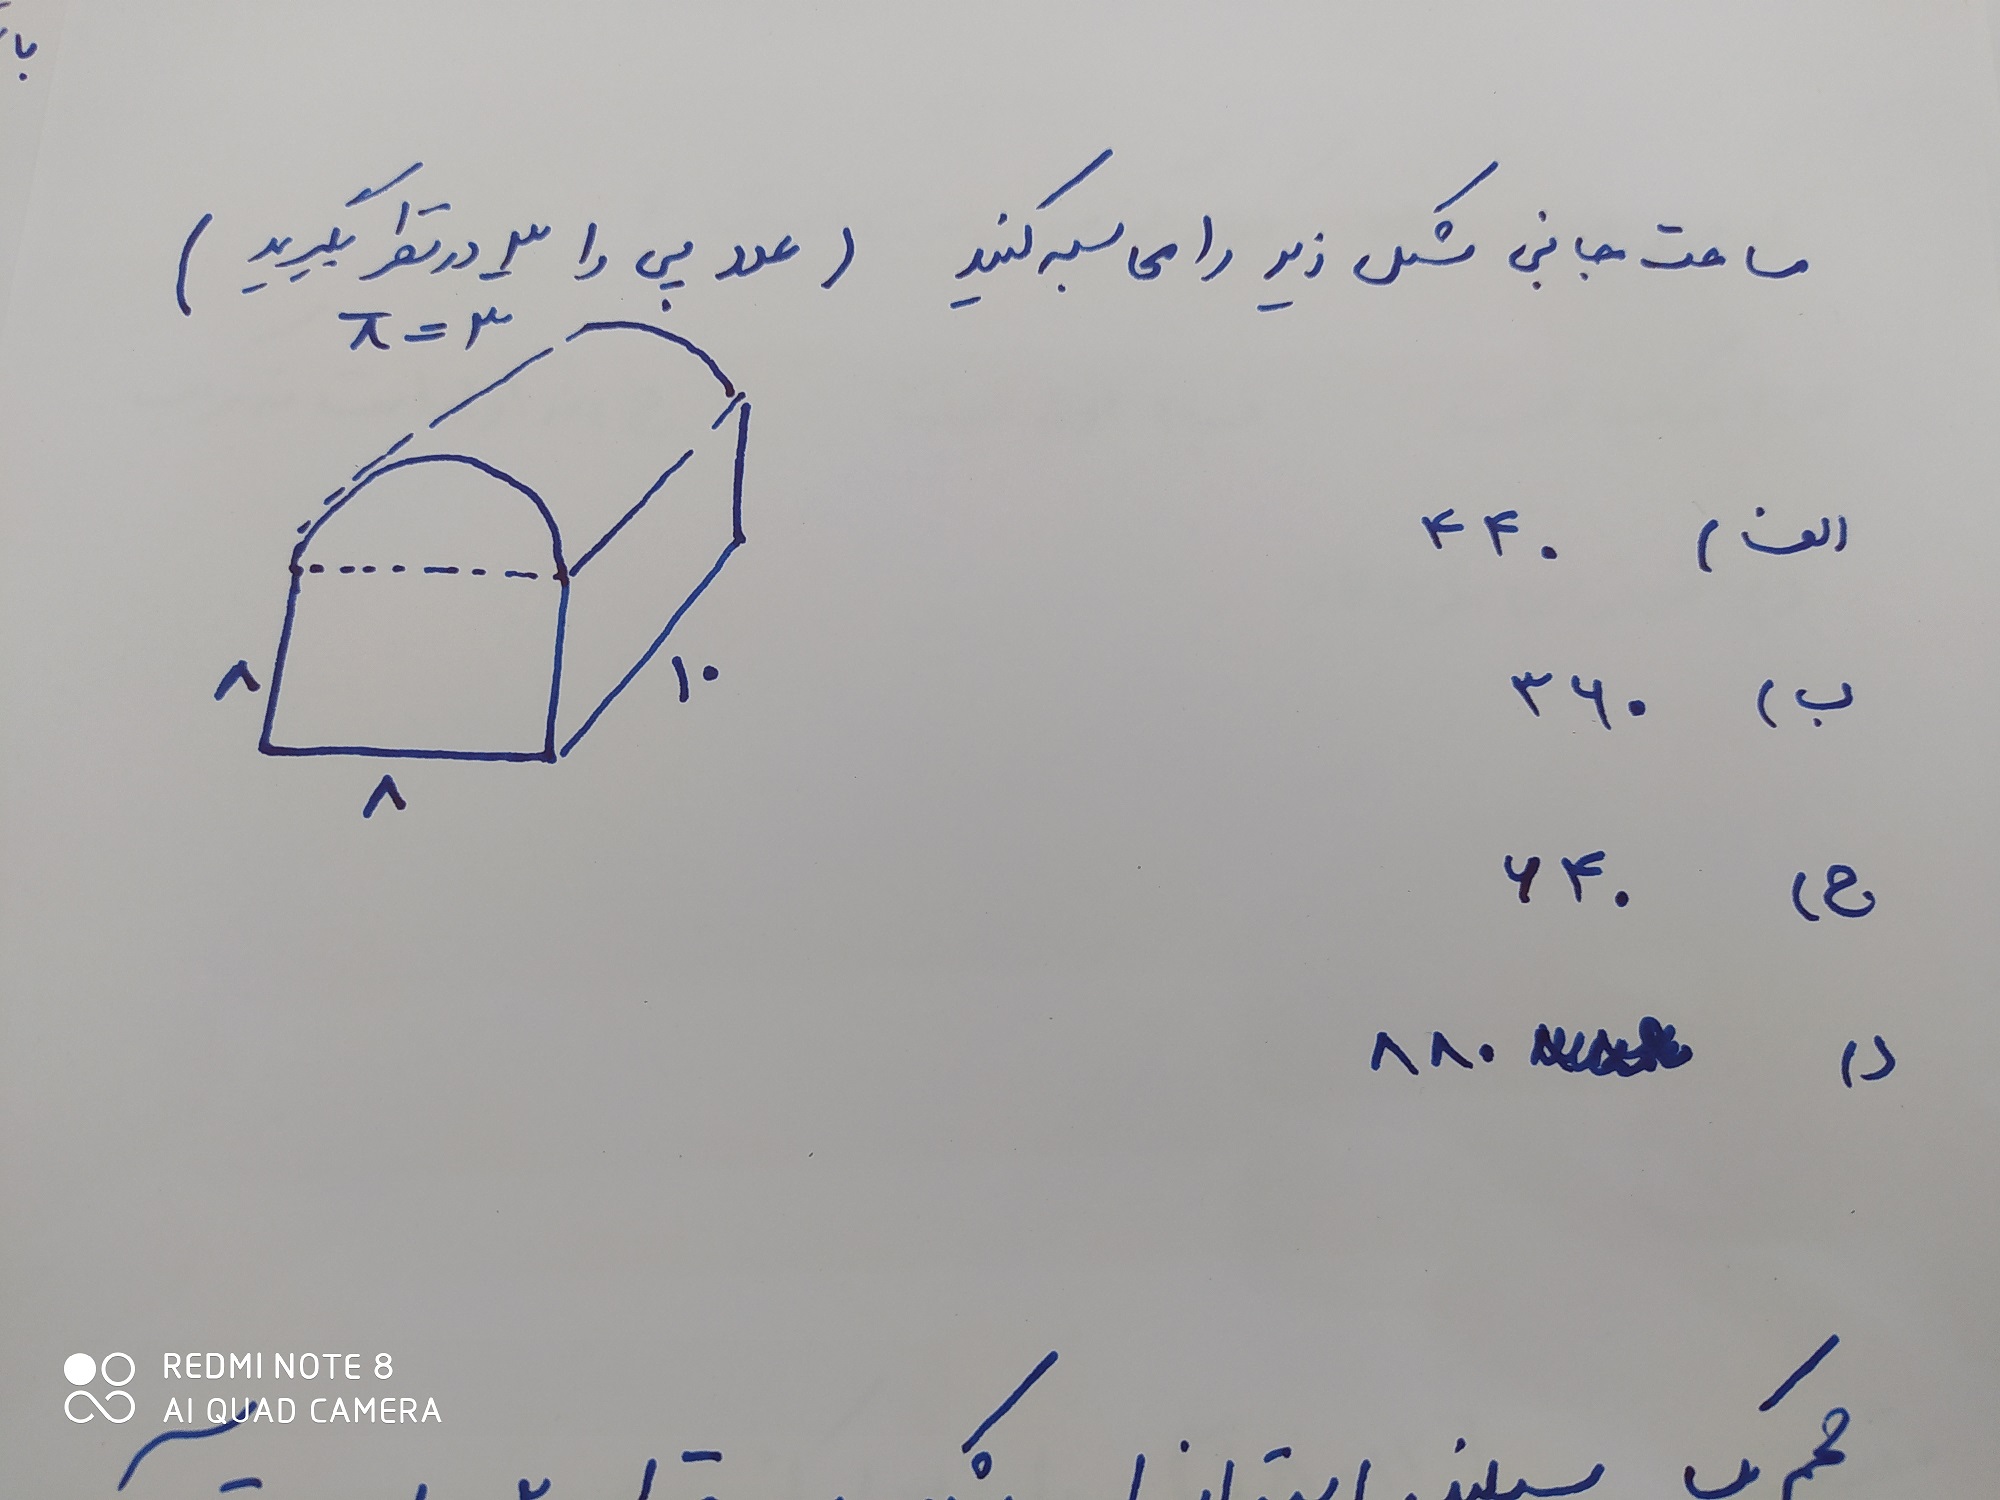 با
مساحت جانبی شکل زیر را محاسبه کنید (عدد پی را ۳ در نظر بگیرید)
π = ۳
۸
۱۰
۸
الف) ۴۴۰
ب) ۳۶۰
ج) ۶۴۰
د) ۸۸۰
REDMI NOTE 8
AI QUAD CAMERA